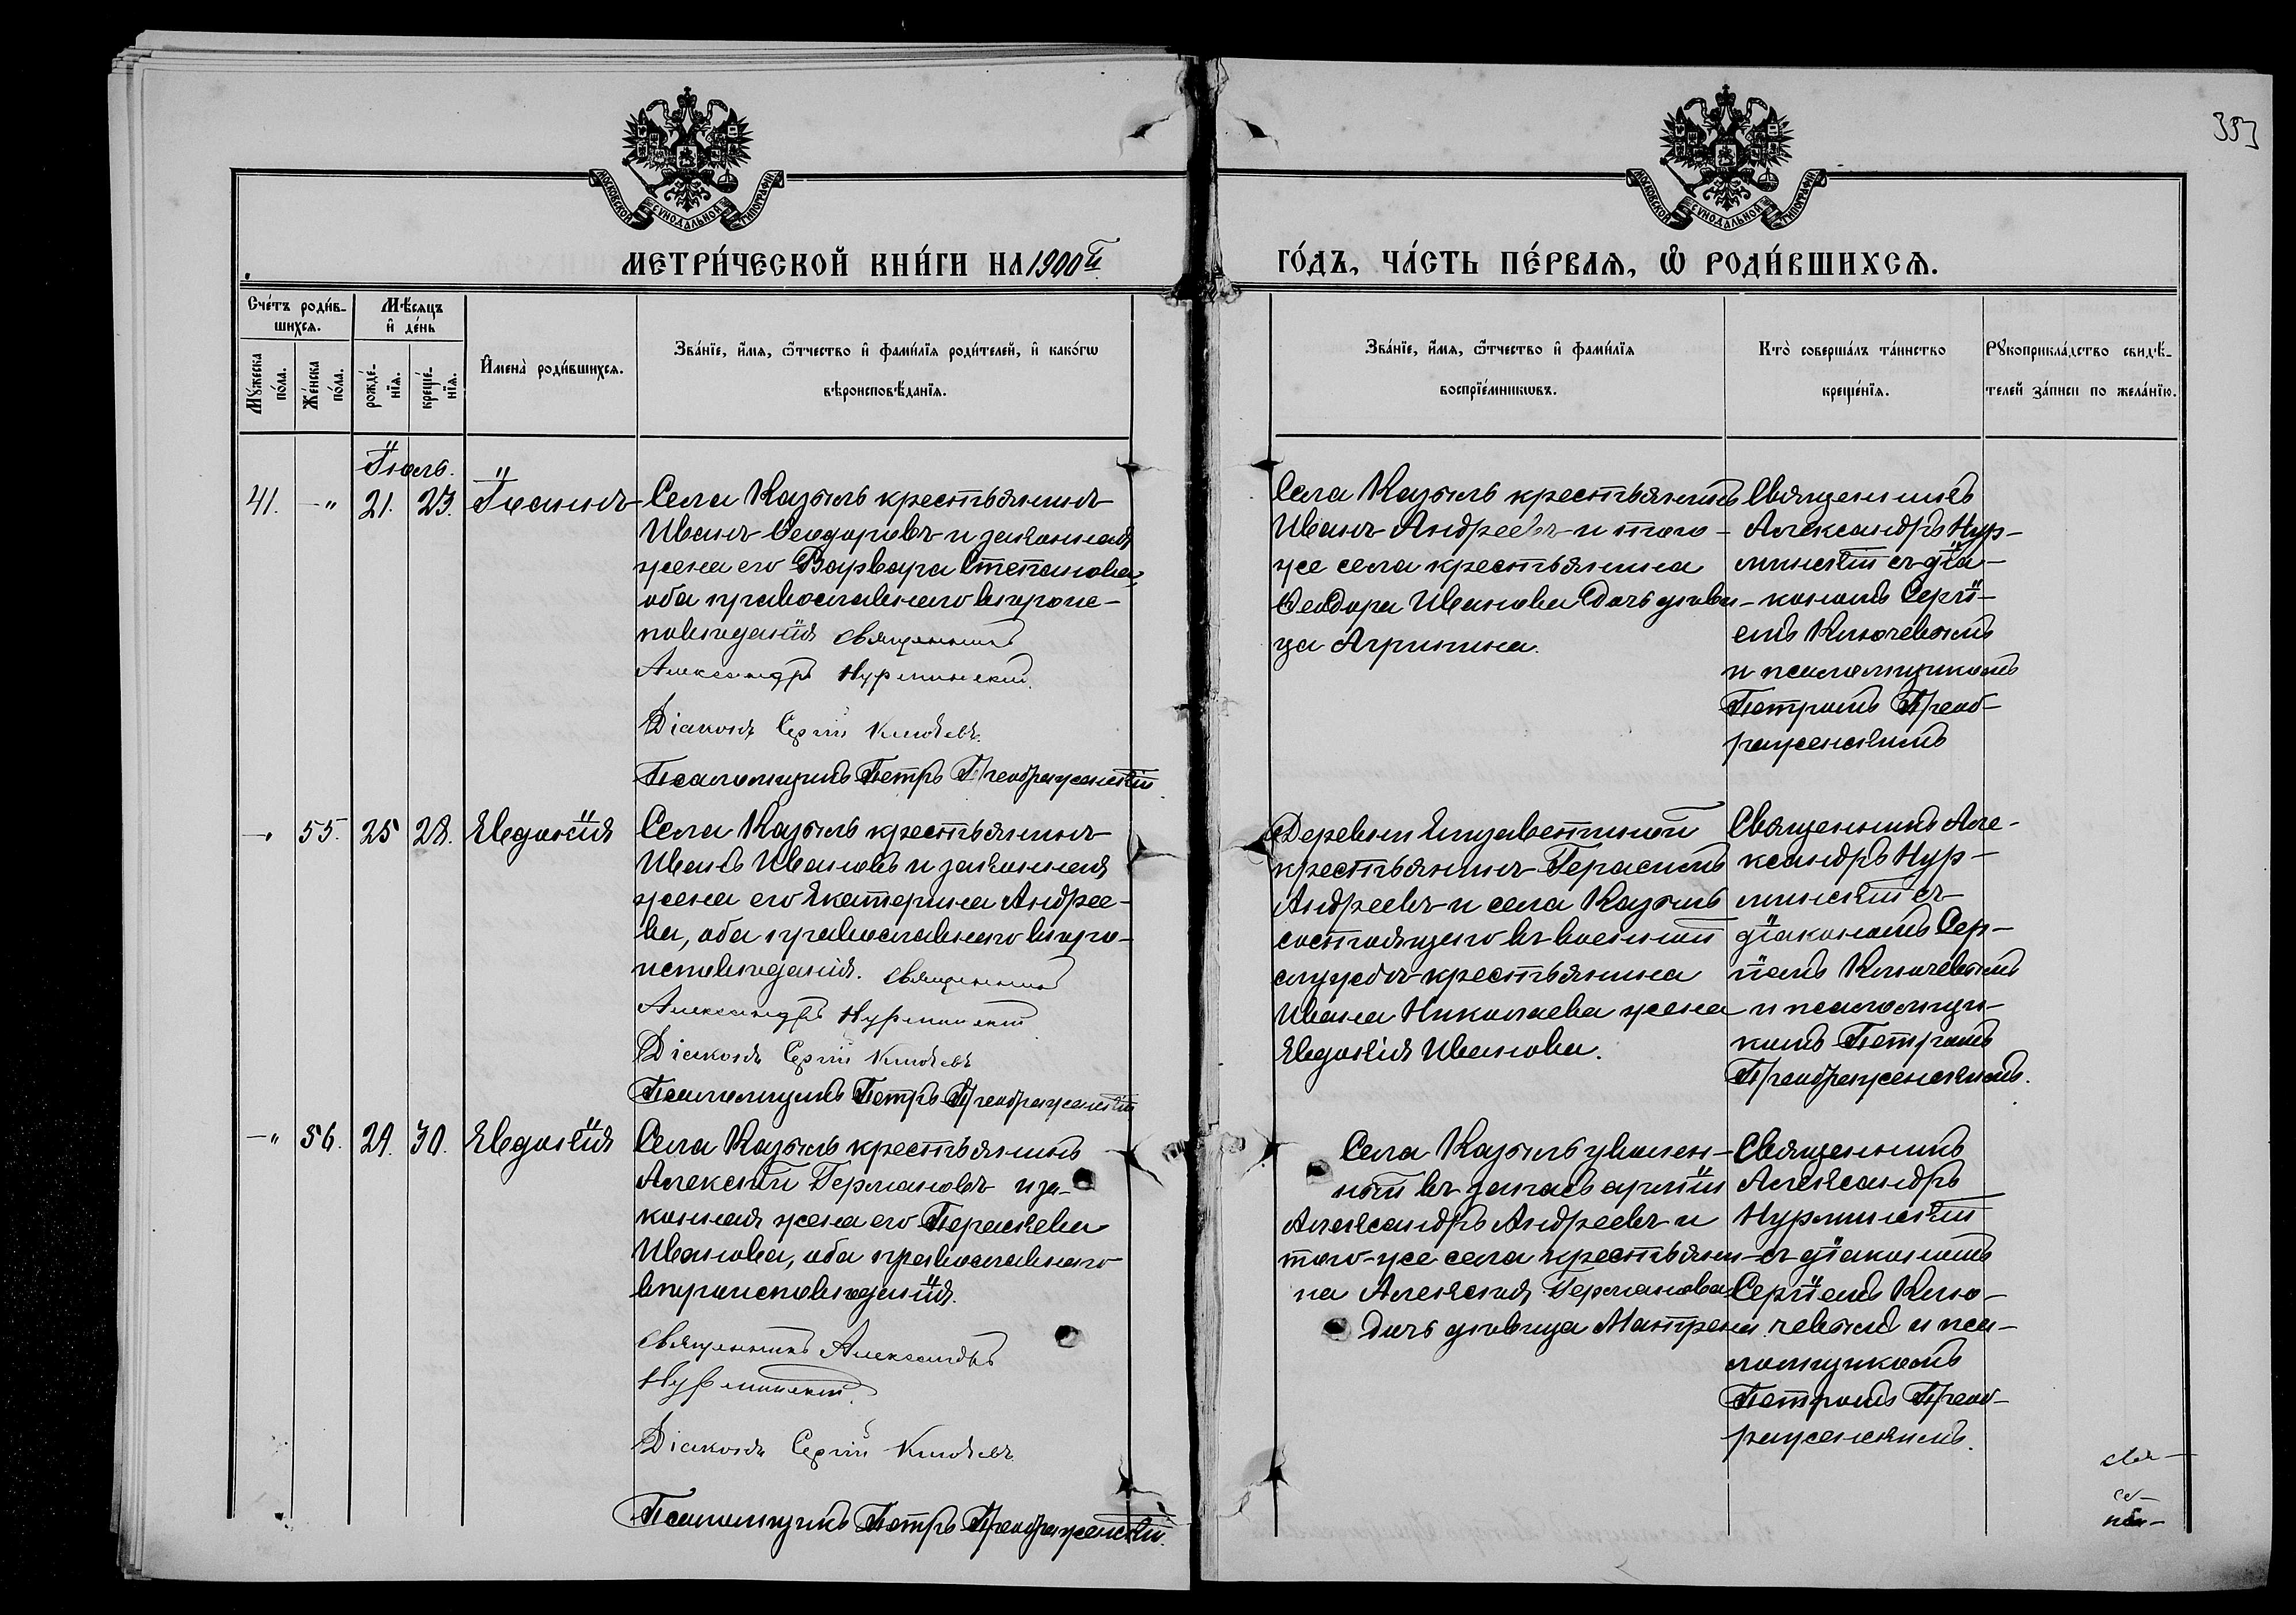 353
МОСКОВСКОЙ СѴНОДАЛЬНОЙ ТИПОГРАФІИ
МОСКОВСКОЙ СѴНОДАЛЬНОЙ ТИПОГРАФІИ
МЕТРИ́ЧЕСКОЙ КНИ́ГИ НА 1900й
ГО́ДЪ, ЧА́СТЬ ПЕ́РВАѦ, Ѡ҆ РОДИ́ВШИХСѦ.
Сче́тъ роди́в-
шихсѧ.
Мꙋ́жеска
по́ла.
Же́нска
по́ла.
Мѣ́сѧцъ
и҆ де́нь
рожде́-
нїѧ.
креще́-
нїѧ.
И҆мена̀ роди́вшихсѧ.
Зва́нїе, и҆́мѧ, ѻ҆́тчество и҆ фами́лїѧ роди́телей, и҆ како́гѡ
вѣроисповѣ́данїѧ.
Зва́нїе, и҆́мѧ, ѻ҆́тчество и҆ фами́лїѧ
воспрїе́мникѡвъ.
Кто̀ соверша́лъ та́инство
креще́нїѧ.
Рꙋкоприкла́дство свидѣ́-
телей за́писи по жела́нїю.
Іюль.
41. —" 21. 23. Іоаннъ
Села Казыль крестьянинъ
Иванъ Ѳеодоровъ и законная
жена его Варвара Степанова,
оба православнаго вѣроис-
повѣданія Священникъ
Александръ Нурминскій.
Діаконъ Сергій Ключевъ.
Псаломщикъ Петръ Преображенскій
Села Казыль крестьянинъ
Иванъ Андреевъ и того-
же села крестьянина
Ѳеодора Иванова дочь дѣви-
ца Агрипина.
Священникъ
Александръ Нур-
минскій съ діа-
кономъ Сергі-
емъ Ключевымъ
и псаломщикомъ
Петромъ Преоб-
раженскимъ
—" 55. 25 28. Евдокія
Села Казыль крестьянинъ
Иванъ Ивановъ и законная
жена его Екатерина Андрее-
ва, оба православнаго вѣро-
исповѣданія. Священникъ
Александръ Нурминскій
Діаконъ Сергій Ключевъ
Псаломщикъ Петръ Преображенскій
Деревни Елизаветиной
крестьянинъ Герасимъ
Андреевъ и села Казыль
состоящаго въ военной
службѣ крестьянина
Ивана Николаева жена
Евдокія Иванова.
Священникъ Але-
ксандръ Нур-
минскій съ
діакономъ Сер-
гіемъ Ключевымъ
и псаломщи-
комъ Петромъ
Преображенскимъ.
—" 56. 29. 30. Евдокія
Села Казыль крестьянинъ
Алексій Германовъ и за-
конная жена его Параскева
Иванова, оба православнаго
вѣроисповѣданія.
Священникъ Александръ
Нурминскій.
Діаконъ Сергій Ключевъ
Псаломщикъ Петръ Преображенскій.
Села Казыль уволен-
ный въ запасъ арміи
Александръ Андреевъ и
того-же села крестьяни-
на Алексія Германова
дочь дѣвица Матрена
Священникъ
Александръ
Нурминскій
съ діакономъ
Сергіемъ Клю-
чевымъ и пса-
ломщикомъ
Петромъ Преоб-
раженскимъ.